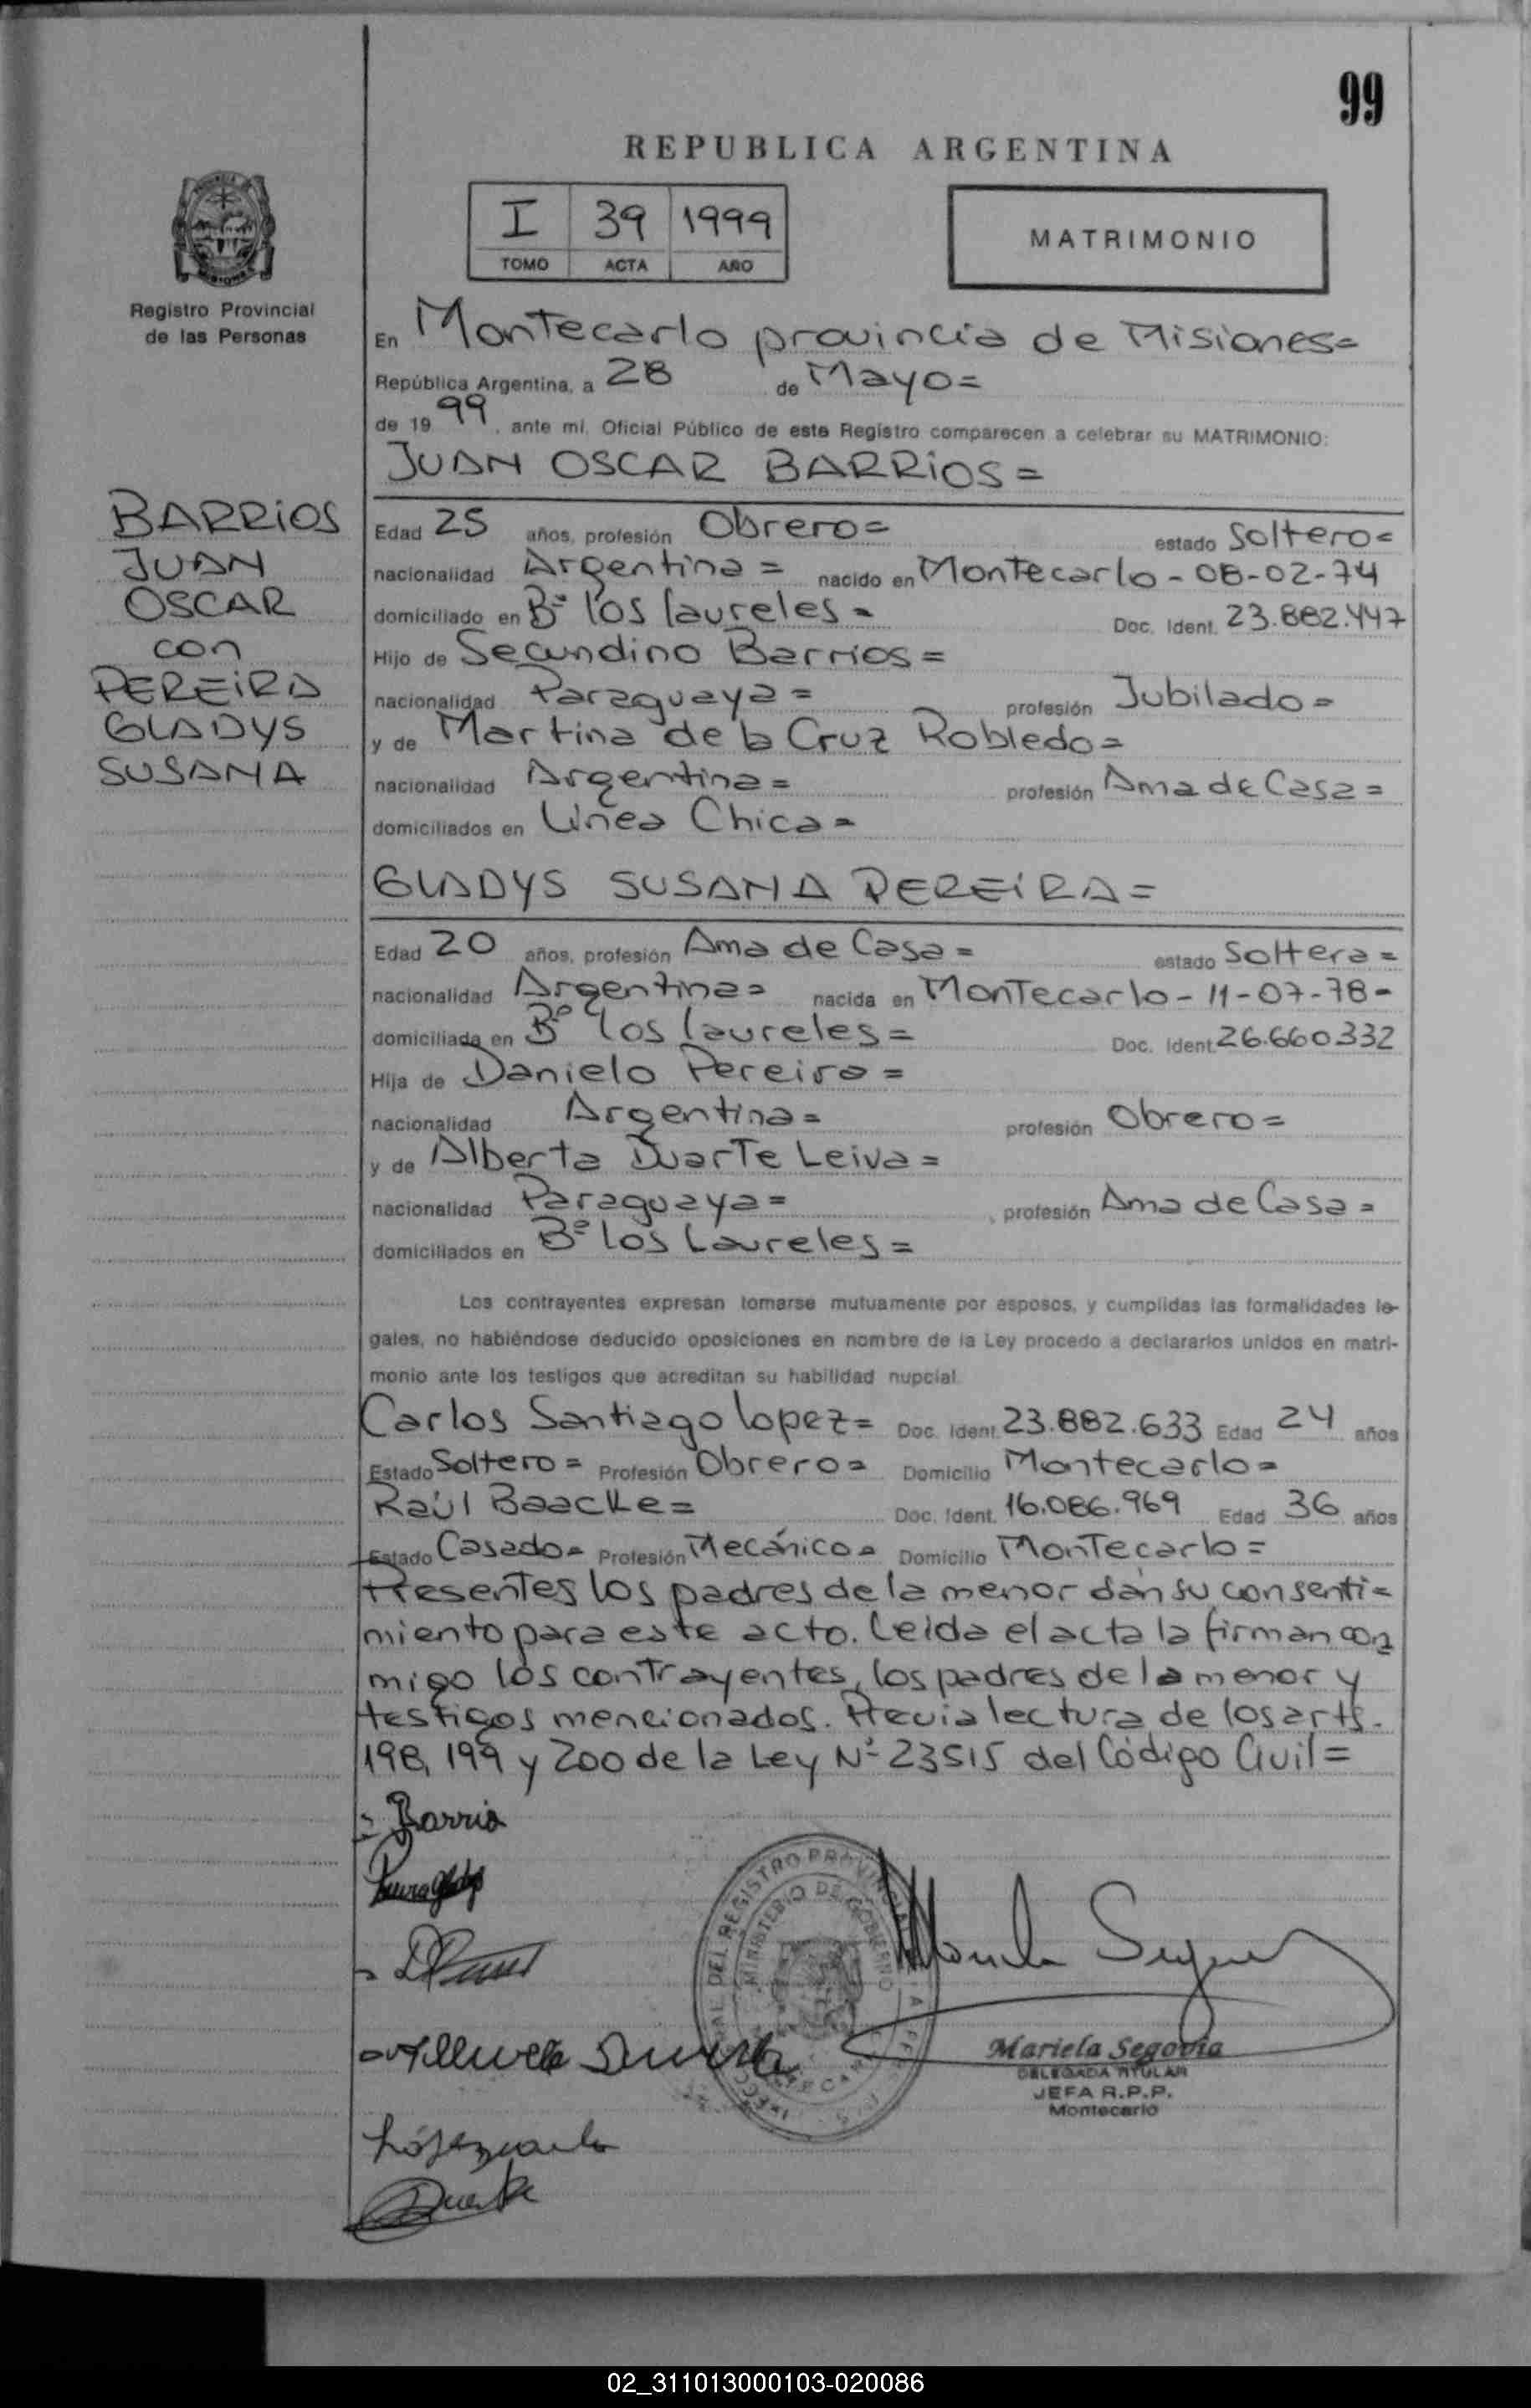 99
REPUBLICA ARGENTINA
I 39 1999
TOMO ACTA AÑO
MATRIMONIO
Registro Provincial
de las Personas
En Montecarlo provincia de Misiones=
República Argentina, a 28 de Mayo=
de 19 99, ante mí, Oficial Público de este Registro comparecen a celebrar su MATRIMONIO:
JUAN OSCAR BARRIOS=
BARRIOS
JUAN
OSCAR
con
PEREIRA
GLADYS
SUSANA
Edad 25 años, profesión Obrero= estado Soltero=
nacionalidad Argentina= nacido en Montecarlo-08-02-74
domiciliado en Bº los laureles= Doc. Ident. 23.882.447
Hijo de Secundino Barrios=
nacionalidad Paraguaya= profesión Jubilado=
y de Martina de la Cruz Robledo=
nacionalidad Argentina= profesión Ama de Casa=
domiciliados en Línea Chica=
GLADYS SUSANA PEREIRA=
Edad 20 años, profesión Ama de Casa= estado Soltera=
nacionalidad Argentina= nacida en Montecarlo-11-07-78-
domiciliada en Bº los laureles= Doc. Ident. 26.660.332
Hija de Danielo Pereira=
nacionalidad Argentina= profesión Obrero=
y de Alberta Duarte Leiva=
nacionalidad Paraguaya= profesión Ama de Casa=
domiciliados en Bº los Laureles=
Los contrayentes expresan tomarse mutuamente por esposos, y cumplidas las formalidades le-
gales, no habiéndose deducido oposiciones en nombre de la Ley procedo a declararlos unidos en matri-
monio ante los testigos que acreditan su habilidad nupcial.
Carlos Santiago lopez= Doc. Ident. 23.882.633 Edad 24 años
Estado Soltero= Profesión Obrero= Domicilio Montecarlo=
Raúl Baacke= Doc. Ident. 16.086.969 Edad 36 años
Estado Casado= Profesión Mecánico= Domicilio Montecarlo=
Presentes los padres de la menor dan su consenti=
miento para este acto. Leída el acta la firman con
migo los contrayentes, los padres de la menor y
testigos mencionados. Previa lectura de los arts.
198, 199 y 200 de la Ley Nº 23515 del Código Civil=
Barrio
Mariela Segovia
DELEGADA TITULAR
JEFA R.P.P.
Montecarlo
02_311013000103-020086